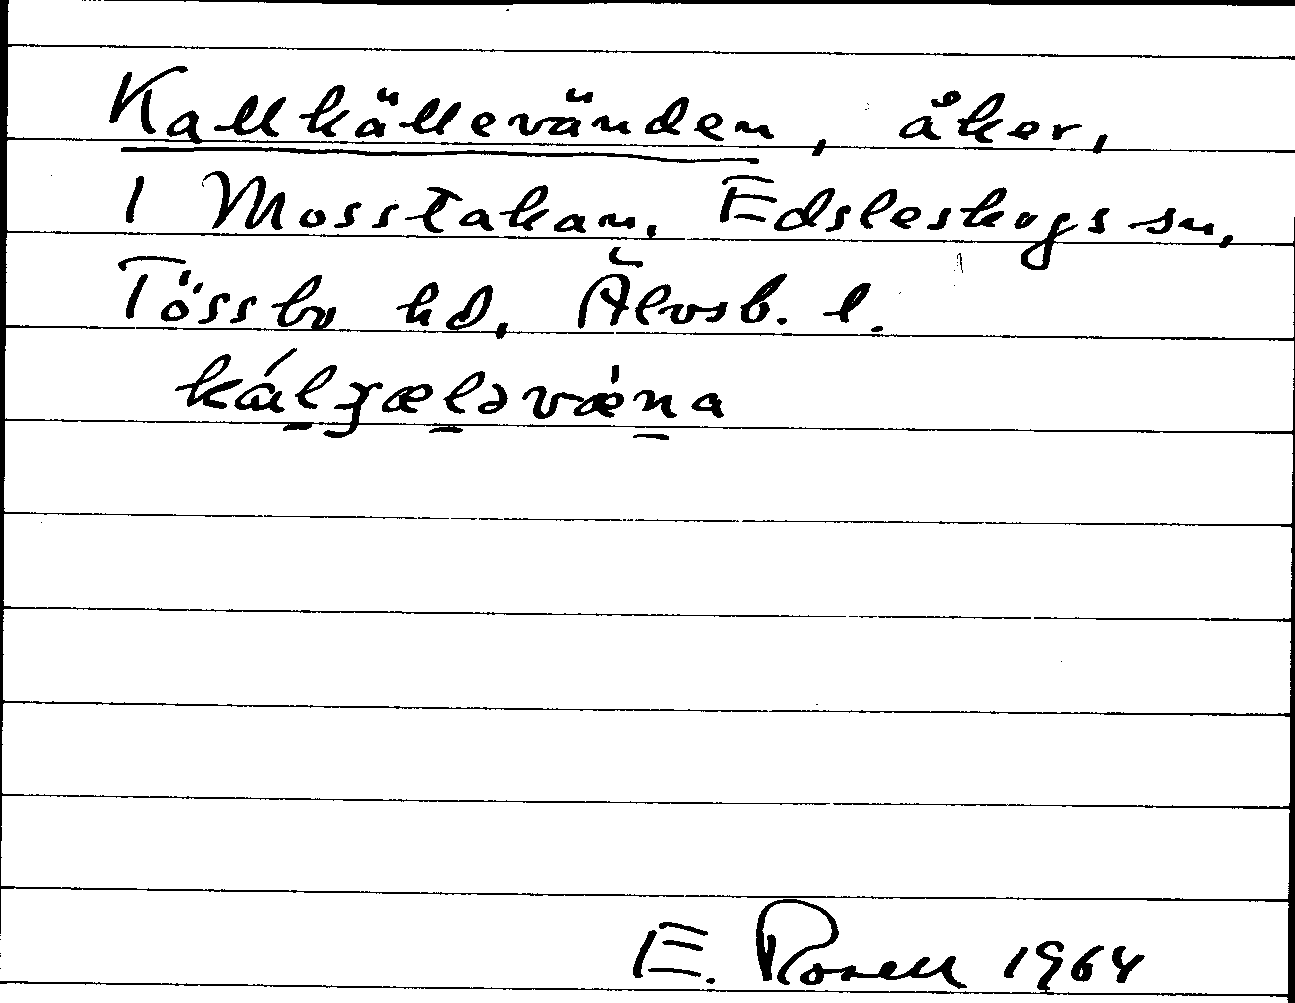 Kallkällevänden, åker,
1 Mosstakan, Edsleskogs sn,
Tössbo hd, Älvsb. l.
kál̠ɟæl̠əvǽn̠a
E. Rosell 1964